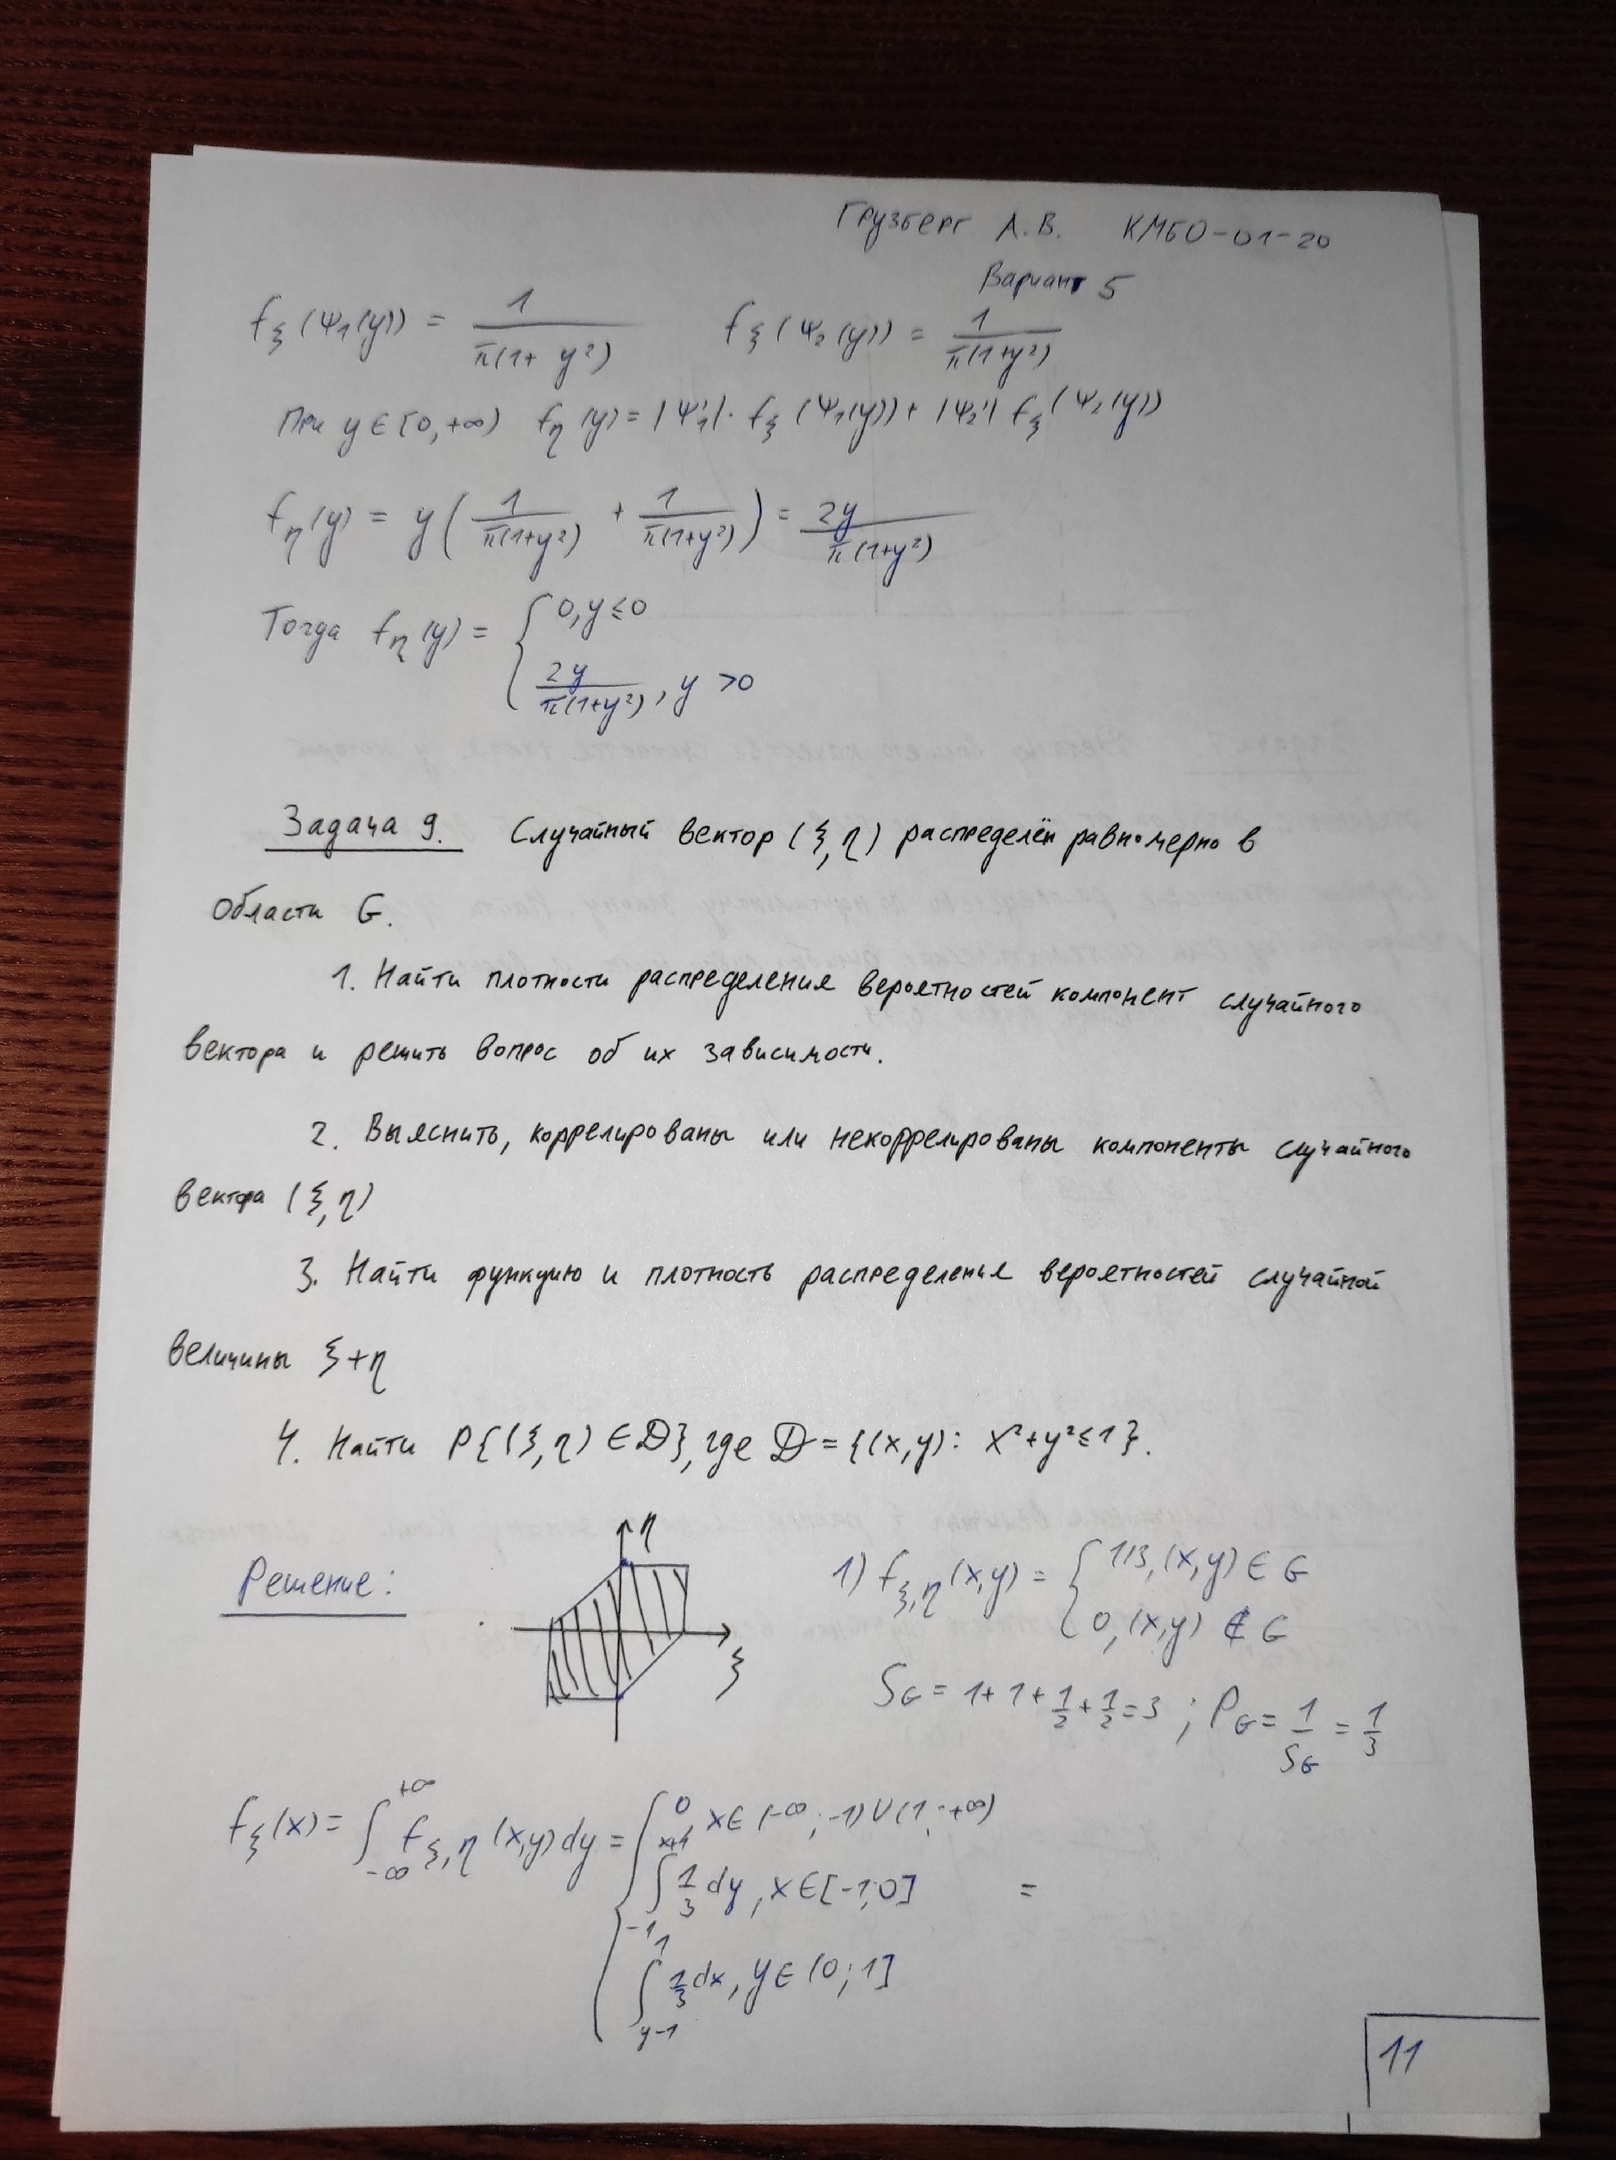 Грузберг А.В. КМБО-01-20
Вариант 5
f_ξ(Ψ₁(y)) = 1/(π(1+y²)) f_ξ(Ψ₂(y)) = 1/(π(1+y²))
При y∈[0,+∞) f_η(y) = |Ψ₁'|·f_ξ(Ψ₁(y)) + |Ψ₂'| f_ξ(Ψ₂(y))
f_η(y) = y(1/(π(1+y²)) + 1/(π(1+y²))) = 2y/(π(1+y²))
Тогда f_η(y) = { 0, y≤0
2y/(π(1+y²)), y>0
Задача 9. Случайный вектор (ξ,η) распределён равномерно в
области G.
1. Найти плотности распределения вероятностей компонент случайного
вектора и решить вопрос об их зависимости.
2. Выяснить, коррелированы или некоррелированы компоненты случайного
вектора (ξ,η)
3. Найти функцию и плотность распределения вероятностей случайной
величины ξ+η
4. Найти P{(ξ,η)∈D}, где D={(x,y): x²+y²≤1}.
Решение:
η
ξ
1) f_ξ,η(x,y) = { 1/3, (x,y)∈G
0, (x,y)∉G
S_G = 1+1+1/2+1/2=3 ; P_G = 1/S_G = 1/3
f_ξ(x) = ∫_{-∞}^{+∞} f_ξ,η(x,y)dy = { 0, x∈(-∞;-1)∪(1;+∞)
∫_{-1}^{x+1} 1/3 dy, x∈[-1;0] =
∫_{y-1}^{1} 1/3 dx, y∈(0;1]
11